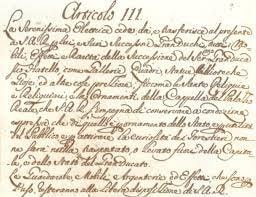 Articolo III.
La Serenissima Elettrice cede, da, e trasferisce al presente
a S.A.R. per lui, e suoi Successori Gran Duchi, tutti i Mo-
bili, Effetti e Rarità della Successione del Serᵐᵒ Gran Duca
suo fratello, come Gallerie, Quadri, Statue, Biblioteche
Gioje, ed altre cose preziose, siccome le Sante Reliquie
e Reliquiari, e loro Ornamenti della Cappella del Palazzo
Reale, che S.A.R. si impegna di conservare, a condizione
espressa che di quello è per ornamento dello Stato, per utilità
del Pubblico e per attirare la curiosità dei Forestieri, non
ne sarà nulla trasportato, o levato fuori della Capita-
le, e dello Stato del Gran Ducato.
Le Guardarobe, e Mobili, Argenterie, ed Effetti
resteranno alla libera disposizione di S.A.R.